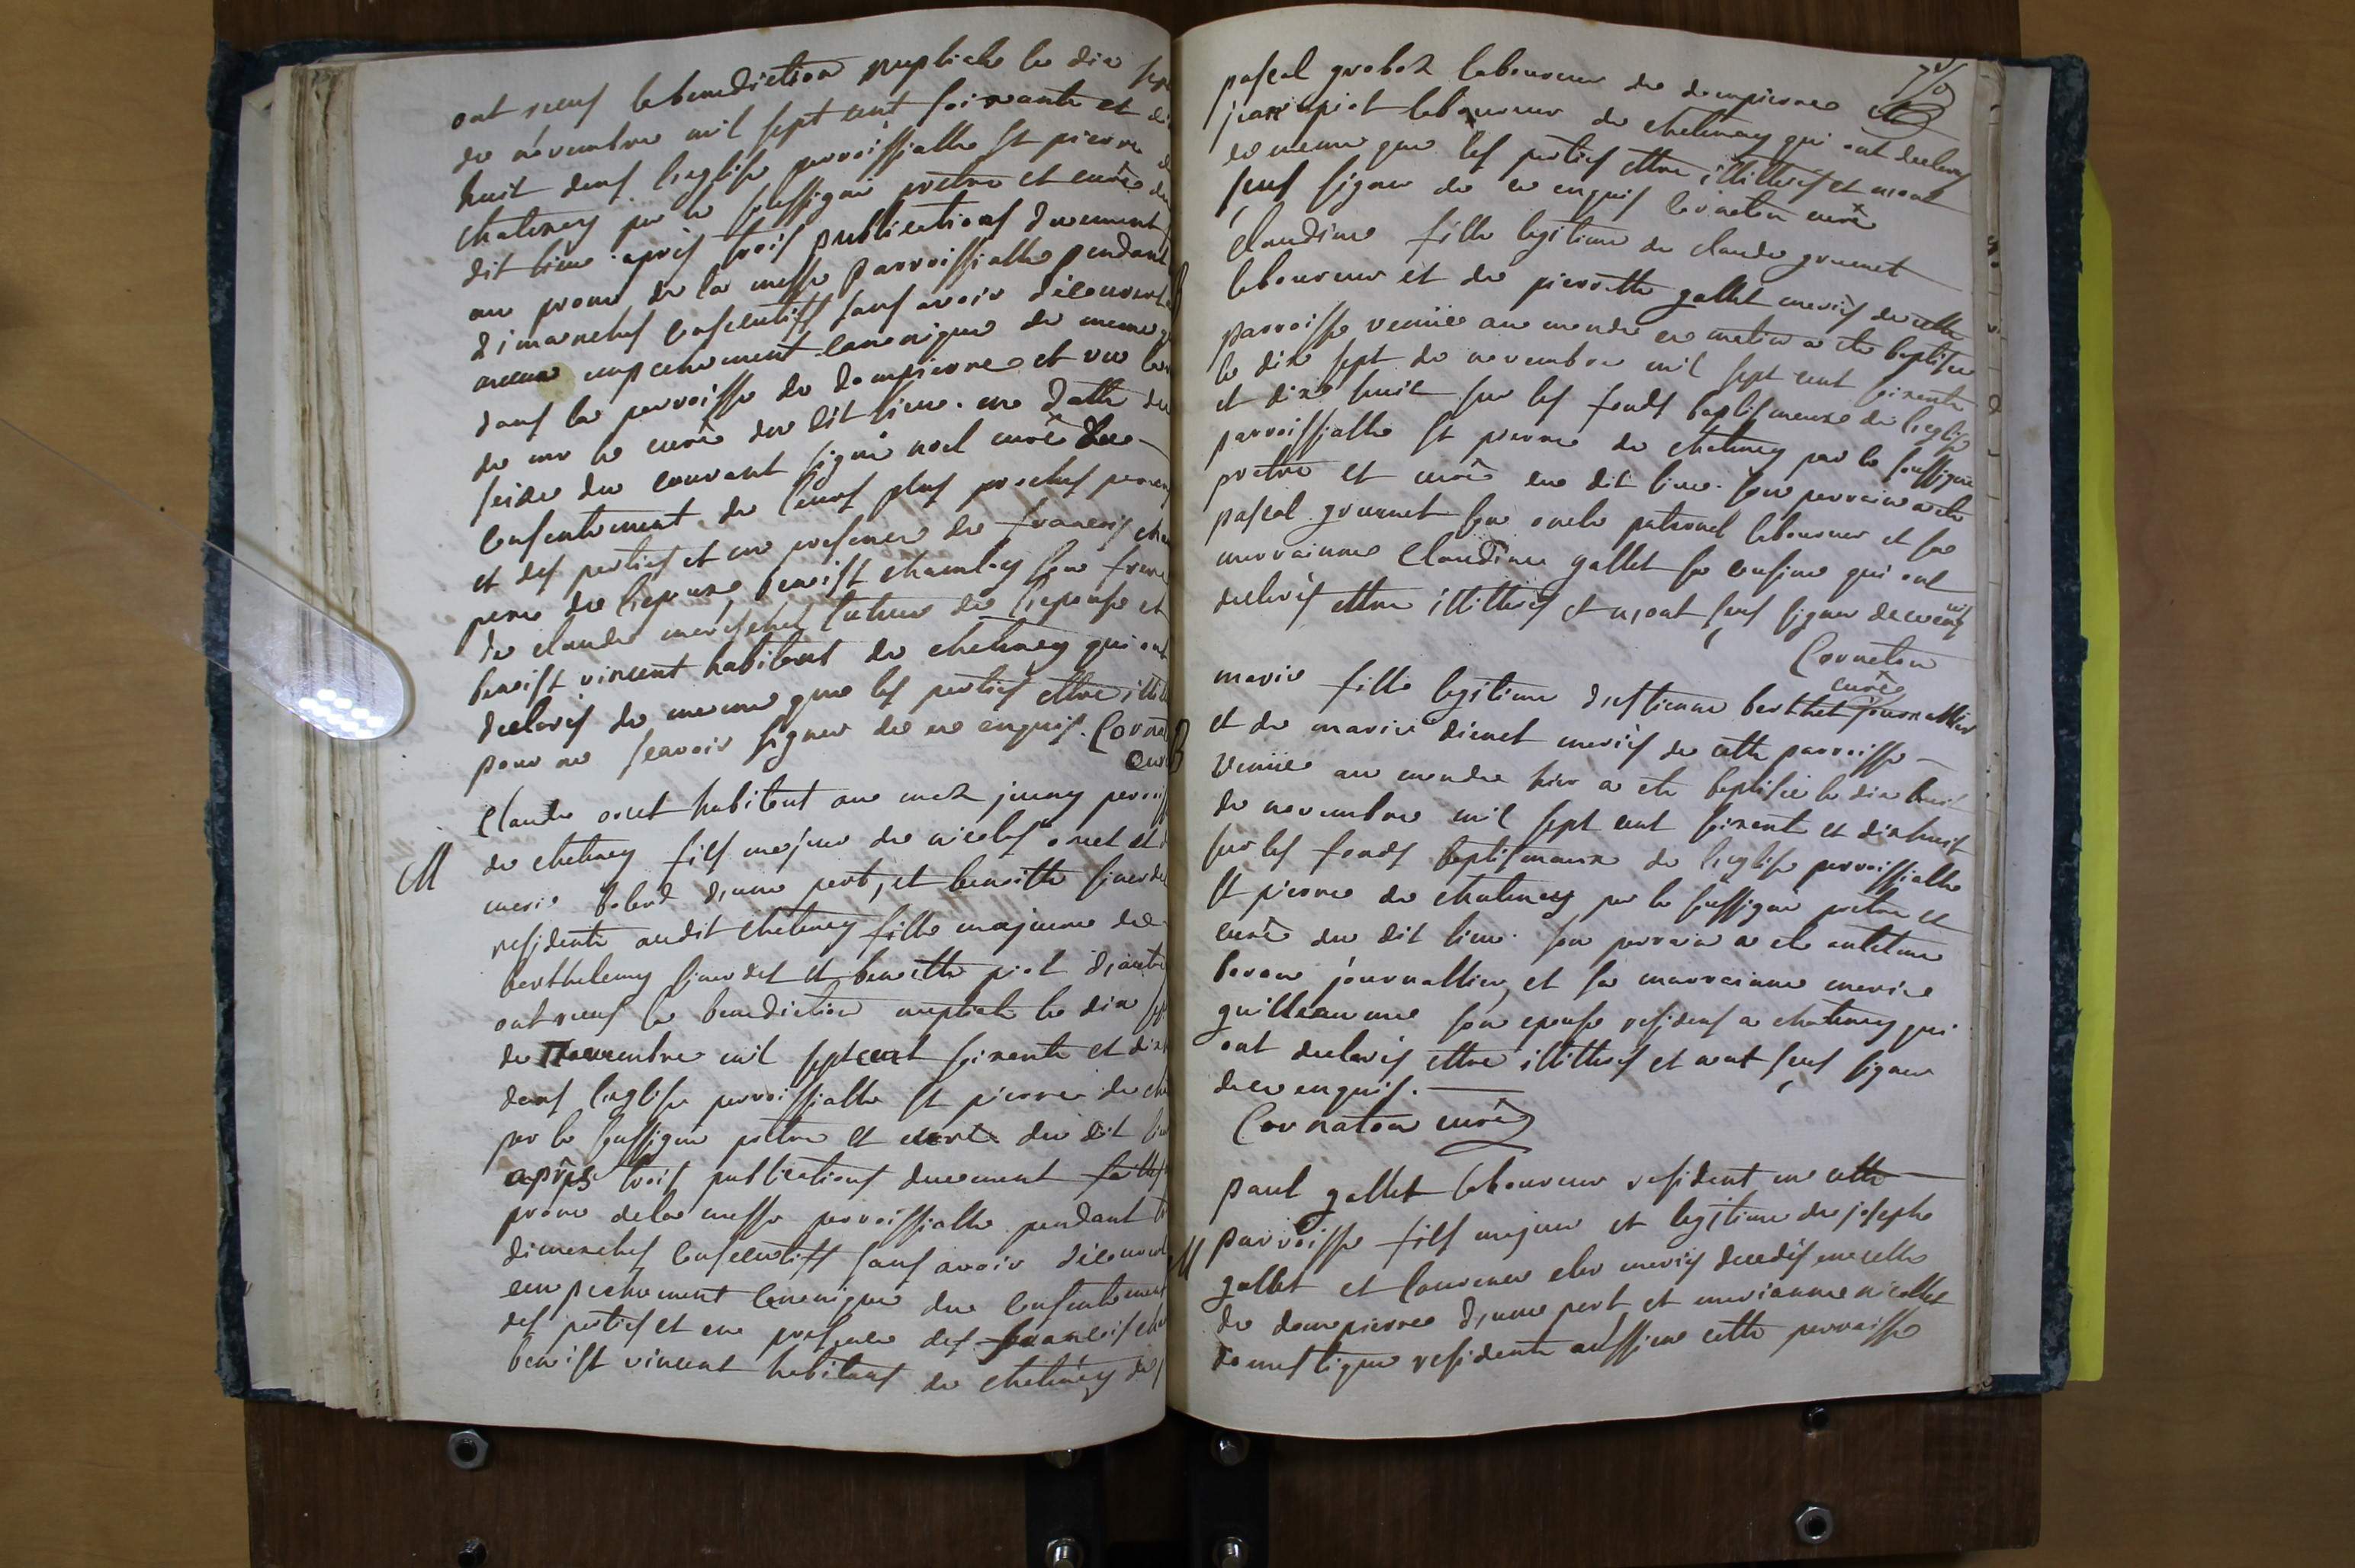 ont reçus la benediction nuptiale le dix sept
de novembre mil sept cent soixante et di
huit dans l'eglise parroissialle St pierre d
chatenay par le soussigné pretre et curé du
dit lieu après trois publications duement
au prone de la messe parroissialle pendant
dimanches consecutifs sans avoir découvert
aucun empechement canonique de meme q
dans la parroisse de dompierre et vu la
de mr le curé du dit lieu en datte du
seize du courant signé noel curé du
consentement de leurs plus proches parens
et des parties et en presence de francois cha
pere de l'epoux benoist chambey son frere
de claude marechal tuteur de l'epouse et
benoist vincent habitant de chatenay qui ont
declarés de meme que les parties ettre illit
pour ne scavoir signer de ce enquis. Cornat
curé
M
Claude oret habitant au maz jenny parroiss
de chatenay fils majeur de nicolas oret et d
marie d'une part, et benoitte
residente audit chatenay fille majeure de
berthelemy et benoitte piot d'autre
ont reçus la benediction nuptiale le dix sept
de Novembre mil sept cent soixante et dix
dans l'eglise parroissialle St pierre de cha
par le soussigné pretre et curé du dit lieu
après trois publications duement faittes
prone de la messe parroissialle pendant tr
dimanches consecutifs sans avoir découvert
empechement canonique du consentement
des parties et en presence des francois cha
benoist vincent habitans de chatenay de
pascal groboz laboureur de dompierre et
jean piot laboureur de chatenay qui ont declarés
de meme que les parties ettre illittrés et n'ont
seus signer de ce enquis Cornaton curé
B
Claudine fille legitime de claude grumet
laboureur et de pierrette gallet mariés de cette
parroisse venüe au monde ce matin a ete baptisée
le dix sept de novembre mil sept cent soixante
et dixe huit sur les fonds baptismeaux de l'eglise
parroissialle St pierre de chatenay par le soussigné
pretre et curé du dit lieu. son parrain a ete
pascal grumet son oncle paternel laboureur et sa
marrainne Claudine gallet sa cousine qui ont
declarés ettre illittrés et n'ont seus signer de ce enquis
Cornaton
curé
B
marie fille legitime d'estienne berthet journallier
et de marie dimet mariés de cette parroisse
venüe au monde hier a ete baptisée le dix huit
de novembre mil sept cent soixante et dix huit
sur les fonds baptismaux de l'eglise parroissialle
St pierre de chatenay par le soussigné pretre et
curé du dit lieu. son parrain a ete antoine
baron journallier, et sa marrainne marie
guilleaume son epouse residens a chatenay qui
ont declarés ettre illittrés et n'ont seus signer
de ce enquis.
Cornaton curé
M
paul gallet laboureur residant en cette
parroisse fils majeur et legitime de josephe
gallet et laurence mariés decedés en celle
de dompierre d'une part et marianne nicollet
domestique residente aussi en cette parroisse